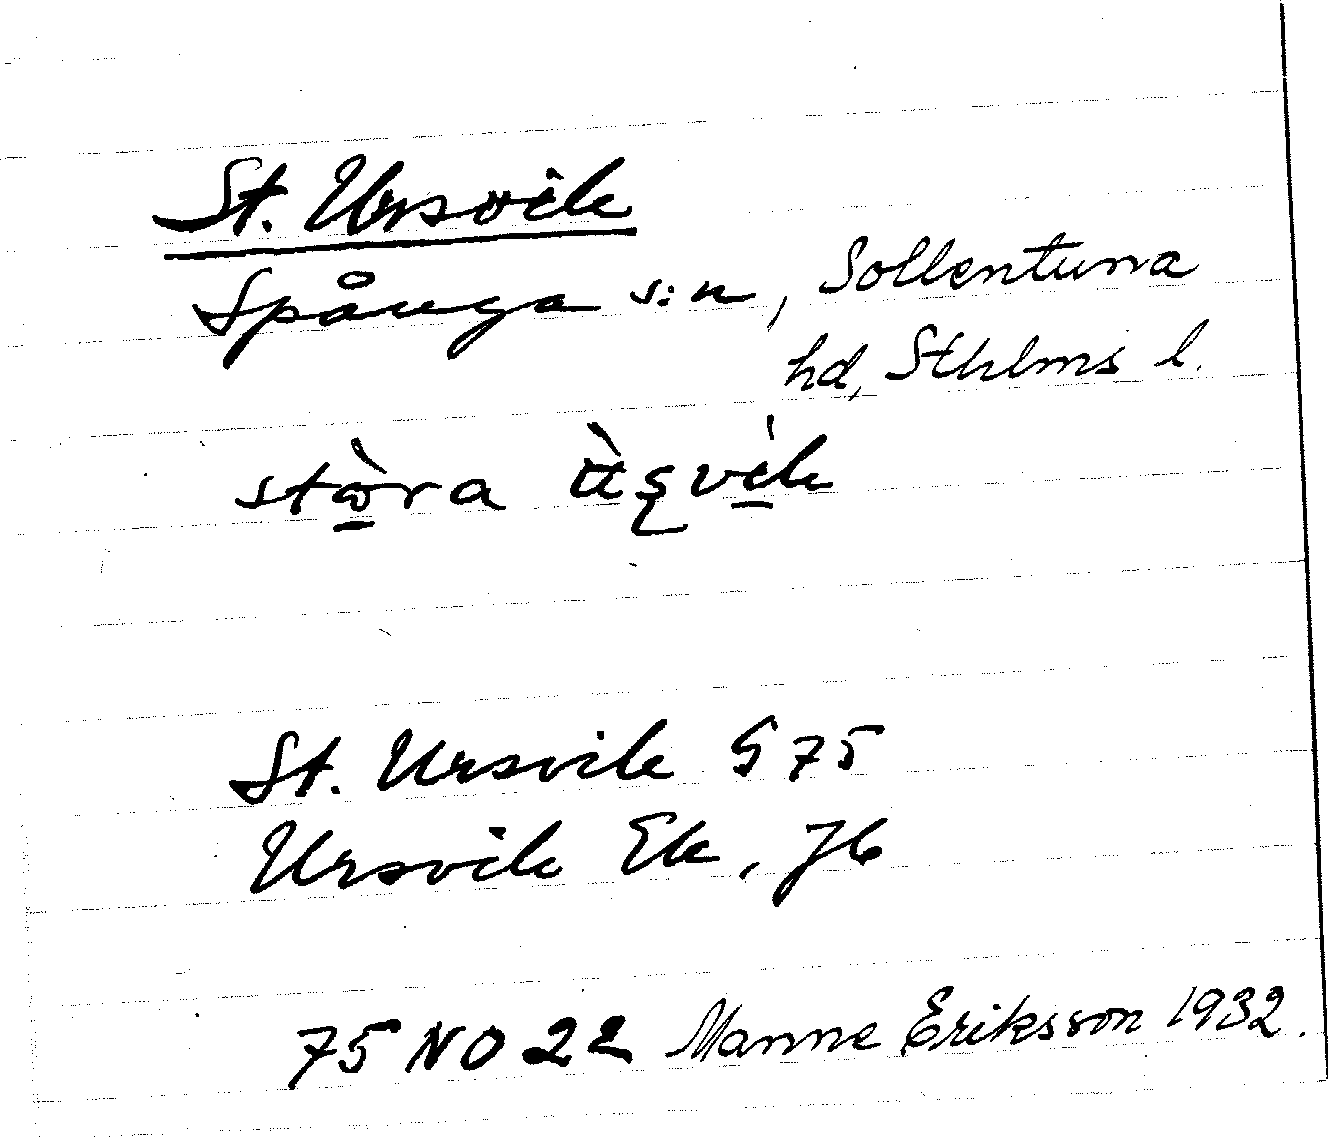 St. Ursvik
Spånga s:n, Sollentuna
hd, Sthlms l.
stὼ̱ra
St. Ursvik G 75
Ursvik Ek, J6
75 NO 22 Manne Eriksson 1932.